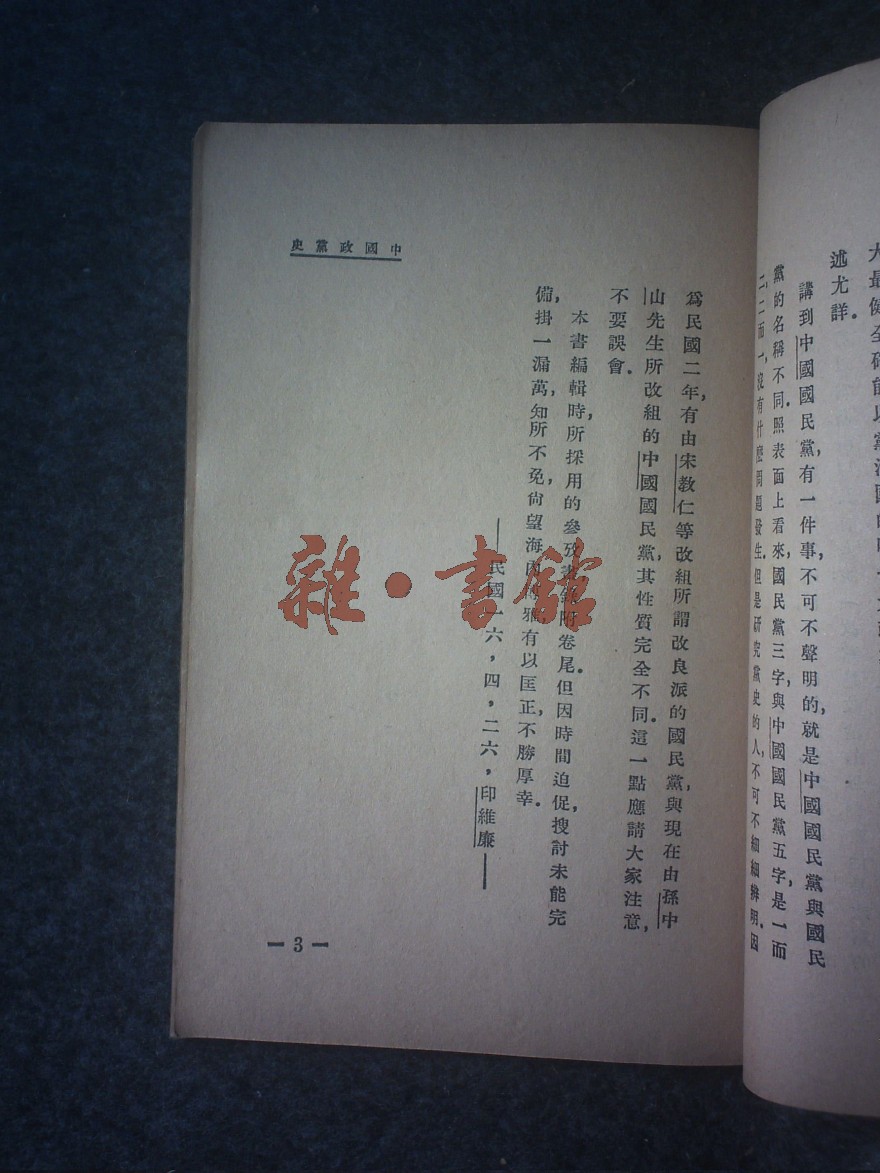 大最健全
述尤詳。
講到中國國民黨,有一件事,不可不聲明的,就是中國國民黨與國民
黨的名稱不同。照表面上看來,國民黨三字,與中國國民黨五字,是一而
二,二而一,沒有什麼問題發生。但是研究黨史的人,不可不細細辨明。因
中國政黨史
爲民國二年,有由宋教仁等改組所謂改良派的國民黨,與現在由孫中
山先生所改組的中國國民黨,其性質完全不同。這一點應請大家注意,
不要誤會。
本書編輯時,所採用的參攷書錄附卷尾。但因時間迫促,搜討未能完
備,掛一漏萬,知所不免,尙望海內博雅,有以匡正,不勝厚幸。
——民國一六,四,二六,印維廉——
— 3 —
雜·書館